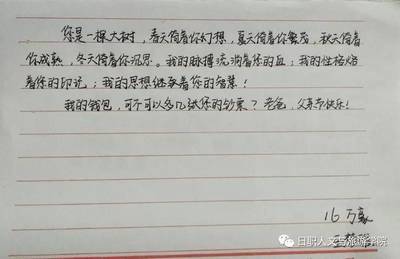 您是一棵大树，春天倚着你幻想，夏天倚着你繁茂，秋天倚着
你成熟，冬天倚着你沉思。我的脉搏流淌着您的血；我的性格烙
着您的印记；我的思想继承着您的智慧！
我的钱包，可不可以多几张您的钞票？老爸，父亲节快乐！
16万豪
日职人文与旅游学院